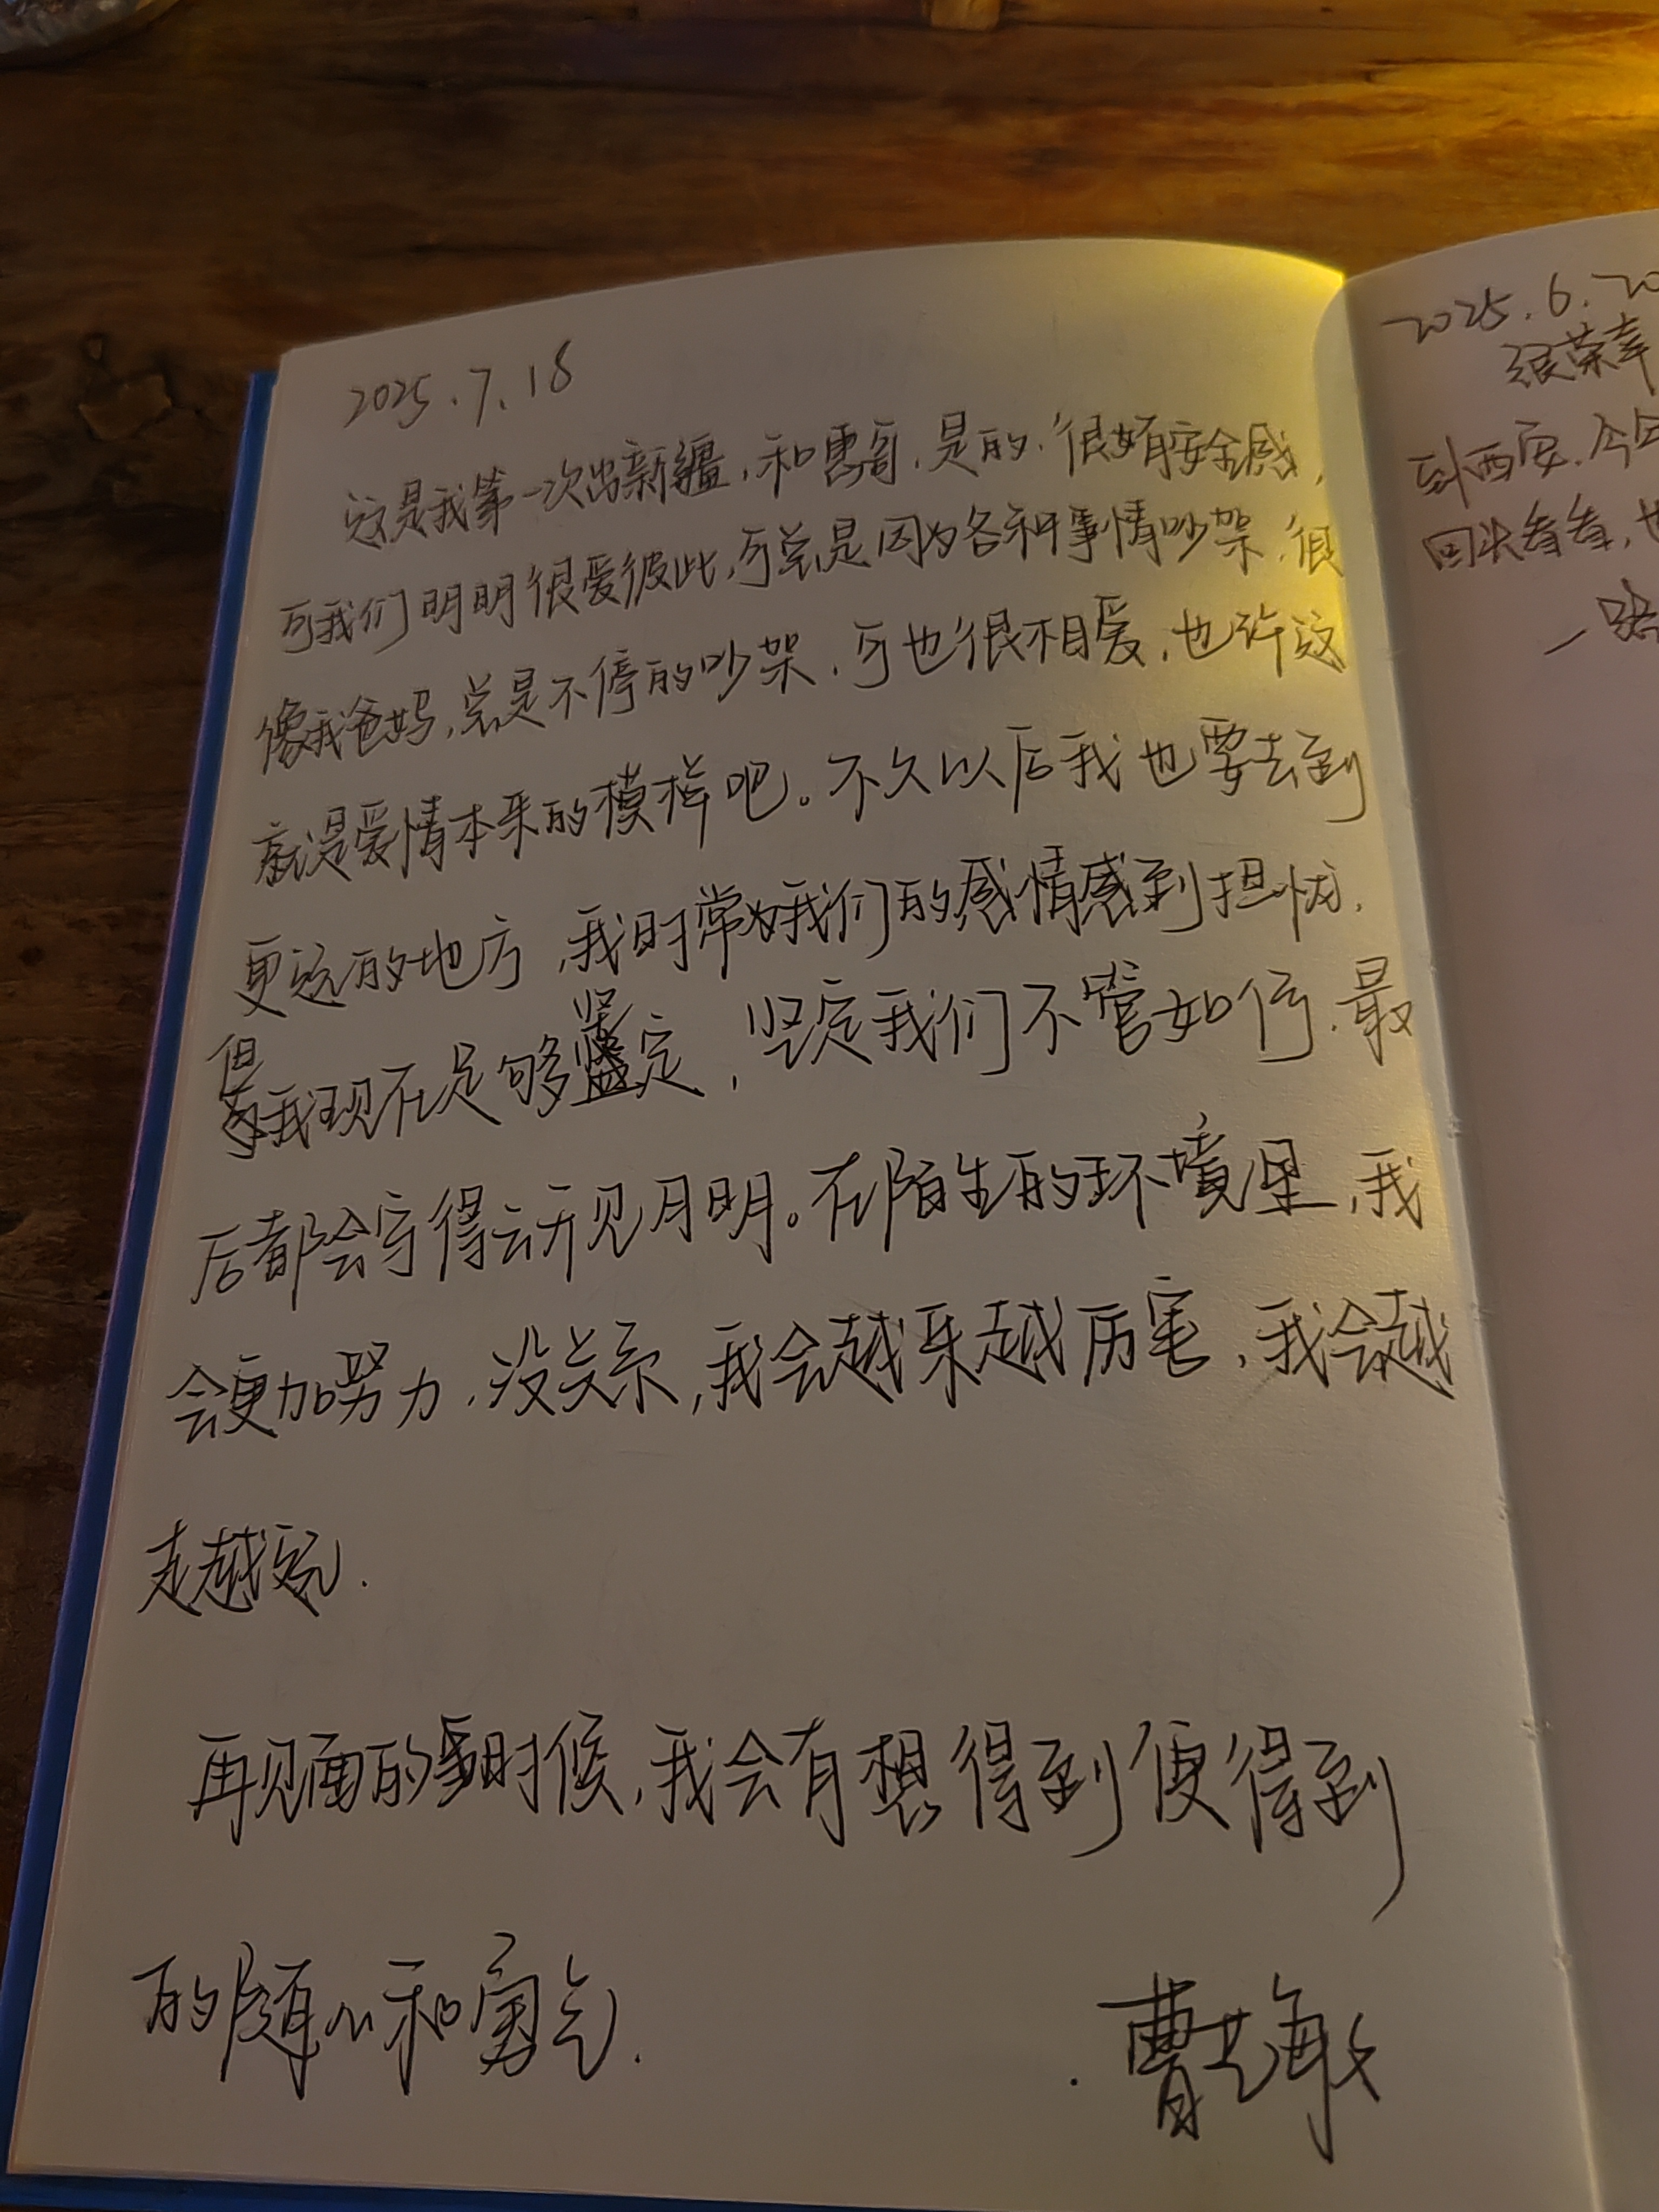 2025.7.18
这是我第一次出新疆，和惠哥，是的，很有安全感，
可我们明明很爱彼此，可总是因为各种事情吵架，很
像我爸妈，总是不停的吵架，可也很相爱，也许这
就是爱情本来的模样吧。不久以后我也要去到
更远的地方，我时常为我们的感情感到担忧，
但我现在足够坚定，坚定我们不管如何，最
后都会守得云开见月明。在陌生的环境里，我
会更加努力，没关系，我会越来越厉害，我会越
走越远.
再见面的时候，我会有想得到便得到
的随心和勇气.
2025.6.20
很荣幸
到西安，今年
回头看看，也
一路